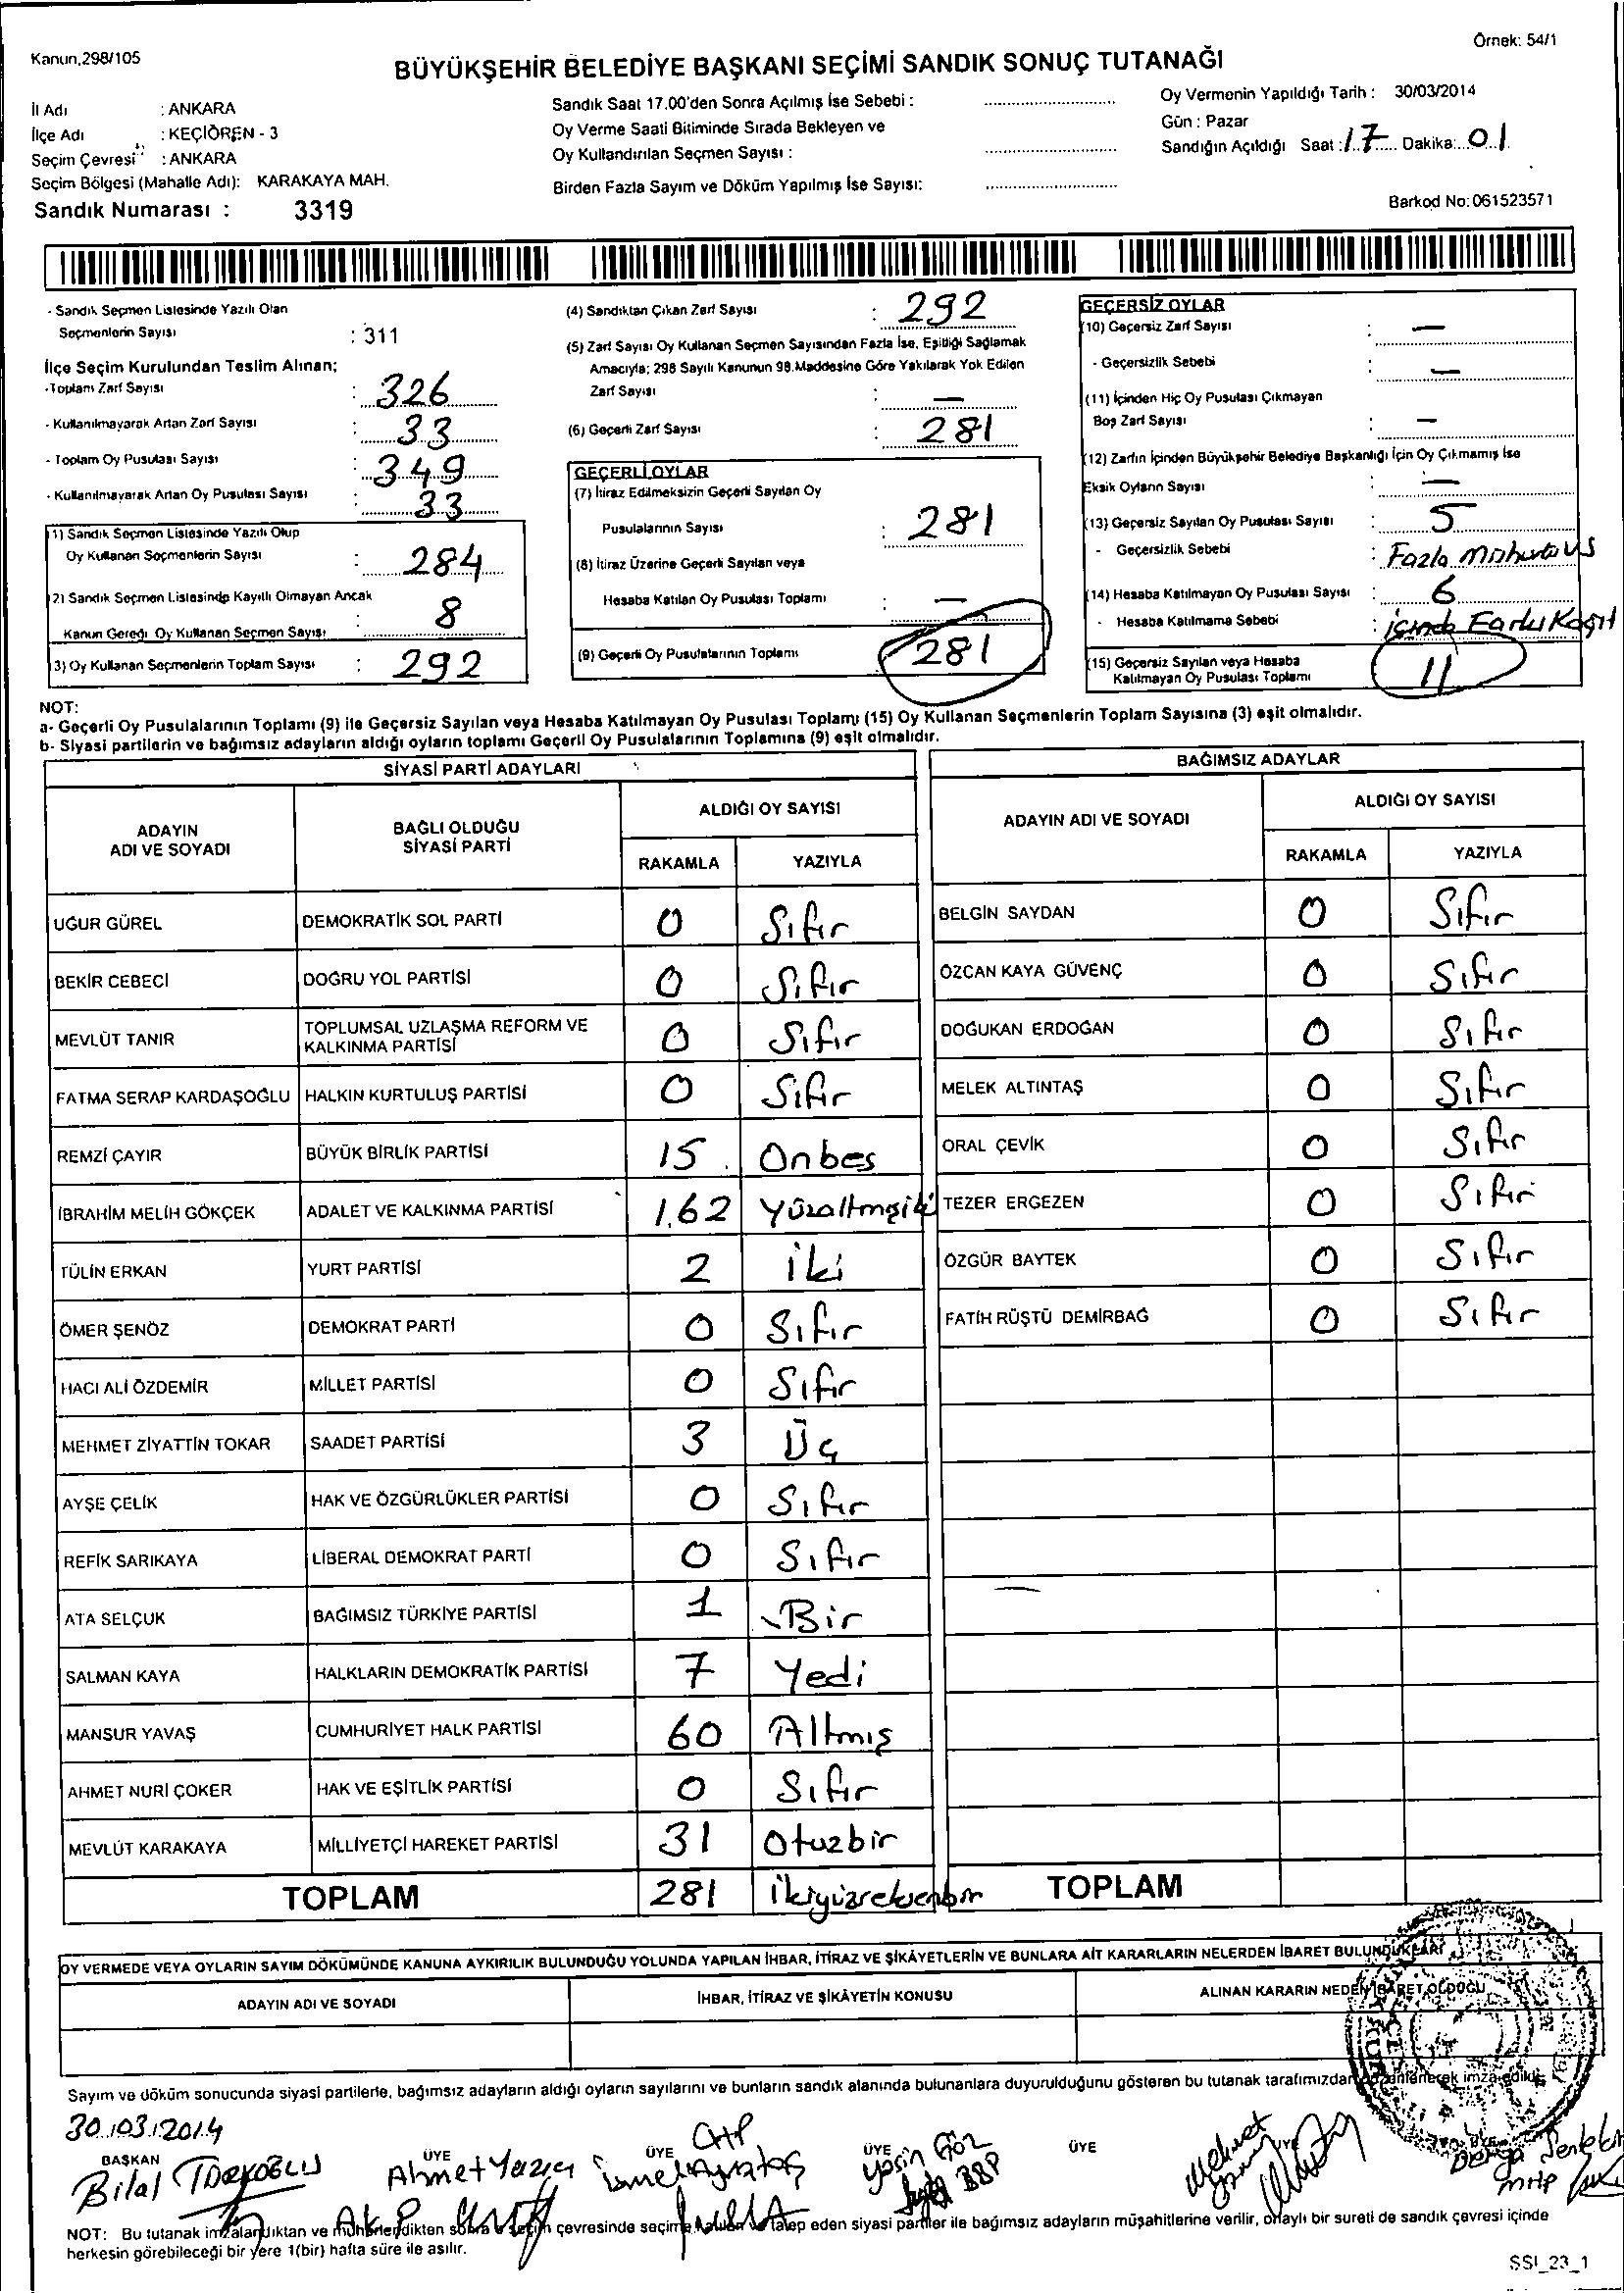 Kanun,298/105
Örnek: 54/1
BÜYÜKŞEHİR BELEDİYE BAŞKANI SEÇİMİ SANDIK SONUÇ TUTANAĞI
İl Adı : ANKARA
İlçe Adı : KEÇİÖREN - 3
Seçim Çevresi : ANKARA
Seçim Bölgesi (Mahalle Adı): KARAKAYA MAH.
Sandık Numarası : 3319
Sandık Saat 17.00'den Sonra Açılmış İse Sebebi :
Oy Verme Saati Bitiminde Sırada Bekleyen ve
Oy Kullandırılan Seçmen Sayısı :
Birden Fazla Sayım ve Döküm Yapılmış İse Sayısı:
Oy Vermenin Yapıldığı Tarih : 30/03/2014
Gün : Pazar
Sandığın Açıldığı Saat : 17 Dakika: 01
Barkod No: 061523571
- Sandık Seçmen Listesinde Yazılı Olan
Seçmenlerin Sayısı : 311
İlçe Seçim Kurulundan Teslim Alınan;
-Toplam Zarf Sayısı : 326
- Kullanılmayarak Artan Zarf Sayısı : 33
- Toplam Oy Pusulası Sayısı : 349
- Kullanılmayarak Artan Oy Pusulası Sayısı : 33
(1) Sandık Seçmen Listesinde Yazılı Olup
Oy Kullanan Seçmenlerin Sayısı : 284
(2) Sandık Seçmen Listesinde Kayıtlı Olmayan Ancak
Kanun Gereği Oy Kullanan Seçmen Sayısı : 8
(3) Oy Kullanan Seçmenlerin Toplam Sayısı : 292
(4) Sandıktan Çıkan Zarf Sayısı : 292
(5) Zarf Sayısı Oy Kullanan Seçmen Sayısından Fazla İse, Eşitliği Sağlamak
Amacıyla; 298 Sayılı Kanunun 98.Maddesine Göre Yakılarak Yok Edilen
Zarf Sayısı : —
(6) Geçerli Zarf Sayısı : 281
GEÇERLİ OYLAR
(7) İtiraz Edilmeksizin Geçerli Sayılan Oy
Pusulalarının Sayısı : 281
(8) İtiraz Üzerine Geçerli Sayılan veya
Hesaba Katılan Oy Pusulası Toplamı : —
(9) Geçerli Oy Pusulalarının Toplamı 281
GEÇERSİZ OYLAR
(10) Geçersiz Zarf Sayısı : —
- Geçersizlik Sebebi : —
(11) İçinden Hiç Oy Pusulası Çıkmayan
Boş Zarf Sayısı : —
(12) Zarfın İçinden Büyükşehir Belediye Başkanlığı İçin Oy Çıkmamış İse
Eksik Oyların Sayısı : —
(13) Geçersiz Sayılan Oy Pusulası Sayısı : 5
- Geçersizlik Sebebi : Fazla
(14) Hesaba Katılmayan Oy Pusulası Sayısı : 6
- Hesaba Katılmama Sebebi : içinde Farklı Kağıt
(15) Geçersiz Sayılan veya Hesaba
Katılmayan Oy Pusulası Toplamı 11
NOT:
a- Geçerli Oy Pusulalarının Toplamı (9) ile Geçersiz Sayılan veya Hesaba Katılmayan Oy Pusulası Toplamı (15) Oy Kullanan Seçmenlerin Toplam Sayısına (3) eşit olmalıdır.
b- Siyasi partilerin ve bağımsız adayların aldığı oyların toplamı Geçerli Oy Pusulalarının Toplamına (9) eşit olmalıdır.
SİYASİ PARTİ ADAYLARI
ADAYIN ADI VE SOYADI
BAĞLI OLDUĞU SİYASİ PARTİ
ALDIĞI OY SAYISI
RAKAMLA YAZIYLA
UĞUR GÜREL DEMOKRATİK SOL PARTİ 0 Sıfır
BEKİR CEBECİ DOĞRU YOL PARTİSİ 0 Sıfır
MEVLÜT TANIR TOPLUMSAL UZLAŞMA REFORM VE KALKINMA PARTİSİ 0 Sıfır
FATMA SERAP KARDAŞOĞLU HALKIN KURTULUŞ PARTİSİ 0 Sıfır
REMZİ ÇAYIR BÜYÜK BİRLİK PARTİSİ 15 Onbeş
İBRAHİM MELİH GÖKÇEK ADALET VE KALKINMA PARTİSİ 162 Yüzaltmışiki
TÜLİN ERKAN YURT PARTİSİ 2 İki
ÖMER ŞENÖZ DEMOKRAT PARTİ 0 Sıfır
HACI ALİ ÖZDEMİR MİLLET PARTİSİ 0 Sıfır
MEHMET ZİYATTİN TOKAR SAADET PARTİSİ 3 Üç
AYŞE ÇELİK HAK VE ÖZGÜRLÜKLER PARTİSİ 0 Sıfır
REFİK SARIKAYA LİBERAL DEMOKRAT PARTİ 0 Sıfır
ATA SELÇUK BAĞIMSIZ TÜRKİYE PARTİSİ 1 Bir
SALMAN KAYA HALKLARIN DEMOKRATİK PARTİSİ 7 Yedi
MANSUR YAVAŞ CUMHURİYET HALK PARTİSİ 60 Altmış
AHMET NURİ ÇOKER HAK VE EŞİTLİK PARTİSİ 0 Sıfır
MEVLÜT KARAKAYA MİLLİYETÇİ HAREKET PARTİSİ 31 Otuzbir
TOPLAM 281 İkiyüzseksenbir
BAĞIMSIZ ADAYLAR
ADAYIN ADI VE SOYADI
ALDIĞI OY SAYISI
RAKAMLA YAZIYLA
BELGİN SAYDAN 0 Sıfır
ÖZCAN KAYA GÜVENÇ 0 Sıfır
DOĞUKAN ERDOĞAN 0 Sıfır
MELEK ALTINTAŞ 0 Sıfır
ORAL ÇEVİK 0 Sıfır
TEZER ERGEZEN 0 Sıfır
ÖZGÜR BAYTEK 0 Sıfır
FATİH RÜŞTÜ DEMİRBAĞ 0 Sıfır
TOPLAM
OY VERMEDE VEYA OYLARIN SAYIM DÖKÜMÜNDE KANUNA AYKIRILIK BULUNDUĞU YOLUNDA YAPILAN İHBAR, İTİRAZ VE ŞİKÂYETLERİN VE BUNLARA AİT KARARLARIN NELERDEN İBARET BULUNDUKLARI
ADAYIN ADI VE SOYADI İHBAR, İTİRAZ VE ŞİKÂYETİN KONUSU ALINAN KARARIN NEDEN İBARET OLDUĞU
Sayım ve döküm sonucunda siyasi partilerle, bağımsız adayların aldığı oyların sayılarını ve bunların sandık alanında bulunanlara duyurulduğunu gösteren bu tutanak tarafımızdan düzenlenerek imza edildi.
30.03.2014
BAŞKAN ÜYE ÜYE ÜYE ÜYE
Bilal
Ahmet Yazıcı AKP
CHP
Yasin Göz BBP
Mehmet
MHP
NOT: Bu tutanak imzalandıktan ve mühürlendikten sonra o seçim çevresinde seçime katılan ve talep eden siyasi partiler ile bağımsız adayların müşahitlerine verilir, onaylı bir sureti de sandık çevresi içinde
herkesin görebileceği bir yere 1(bir) hafta süre ile asılır.
SSI_23_1